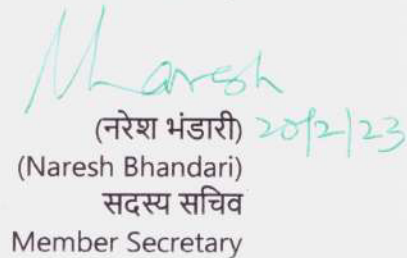 Naresh
(नरेश भंडारी) 20/2/23
(Naresh Bhandari)
सदस्य सचिव
Member Secretary